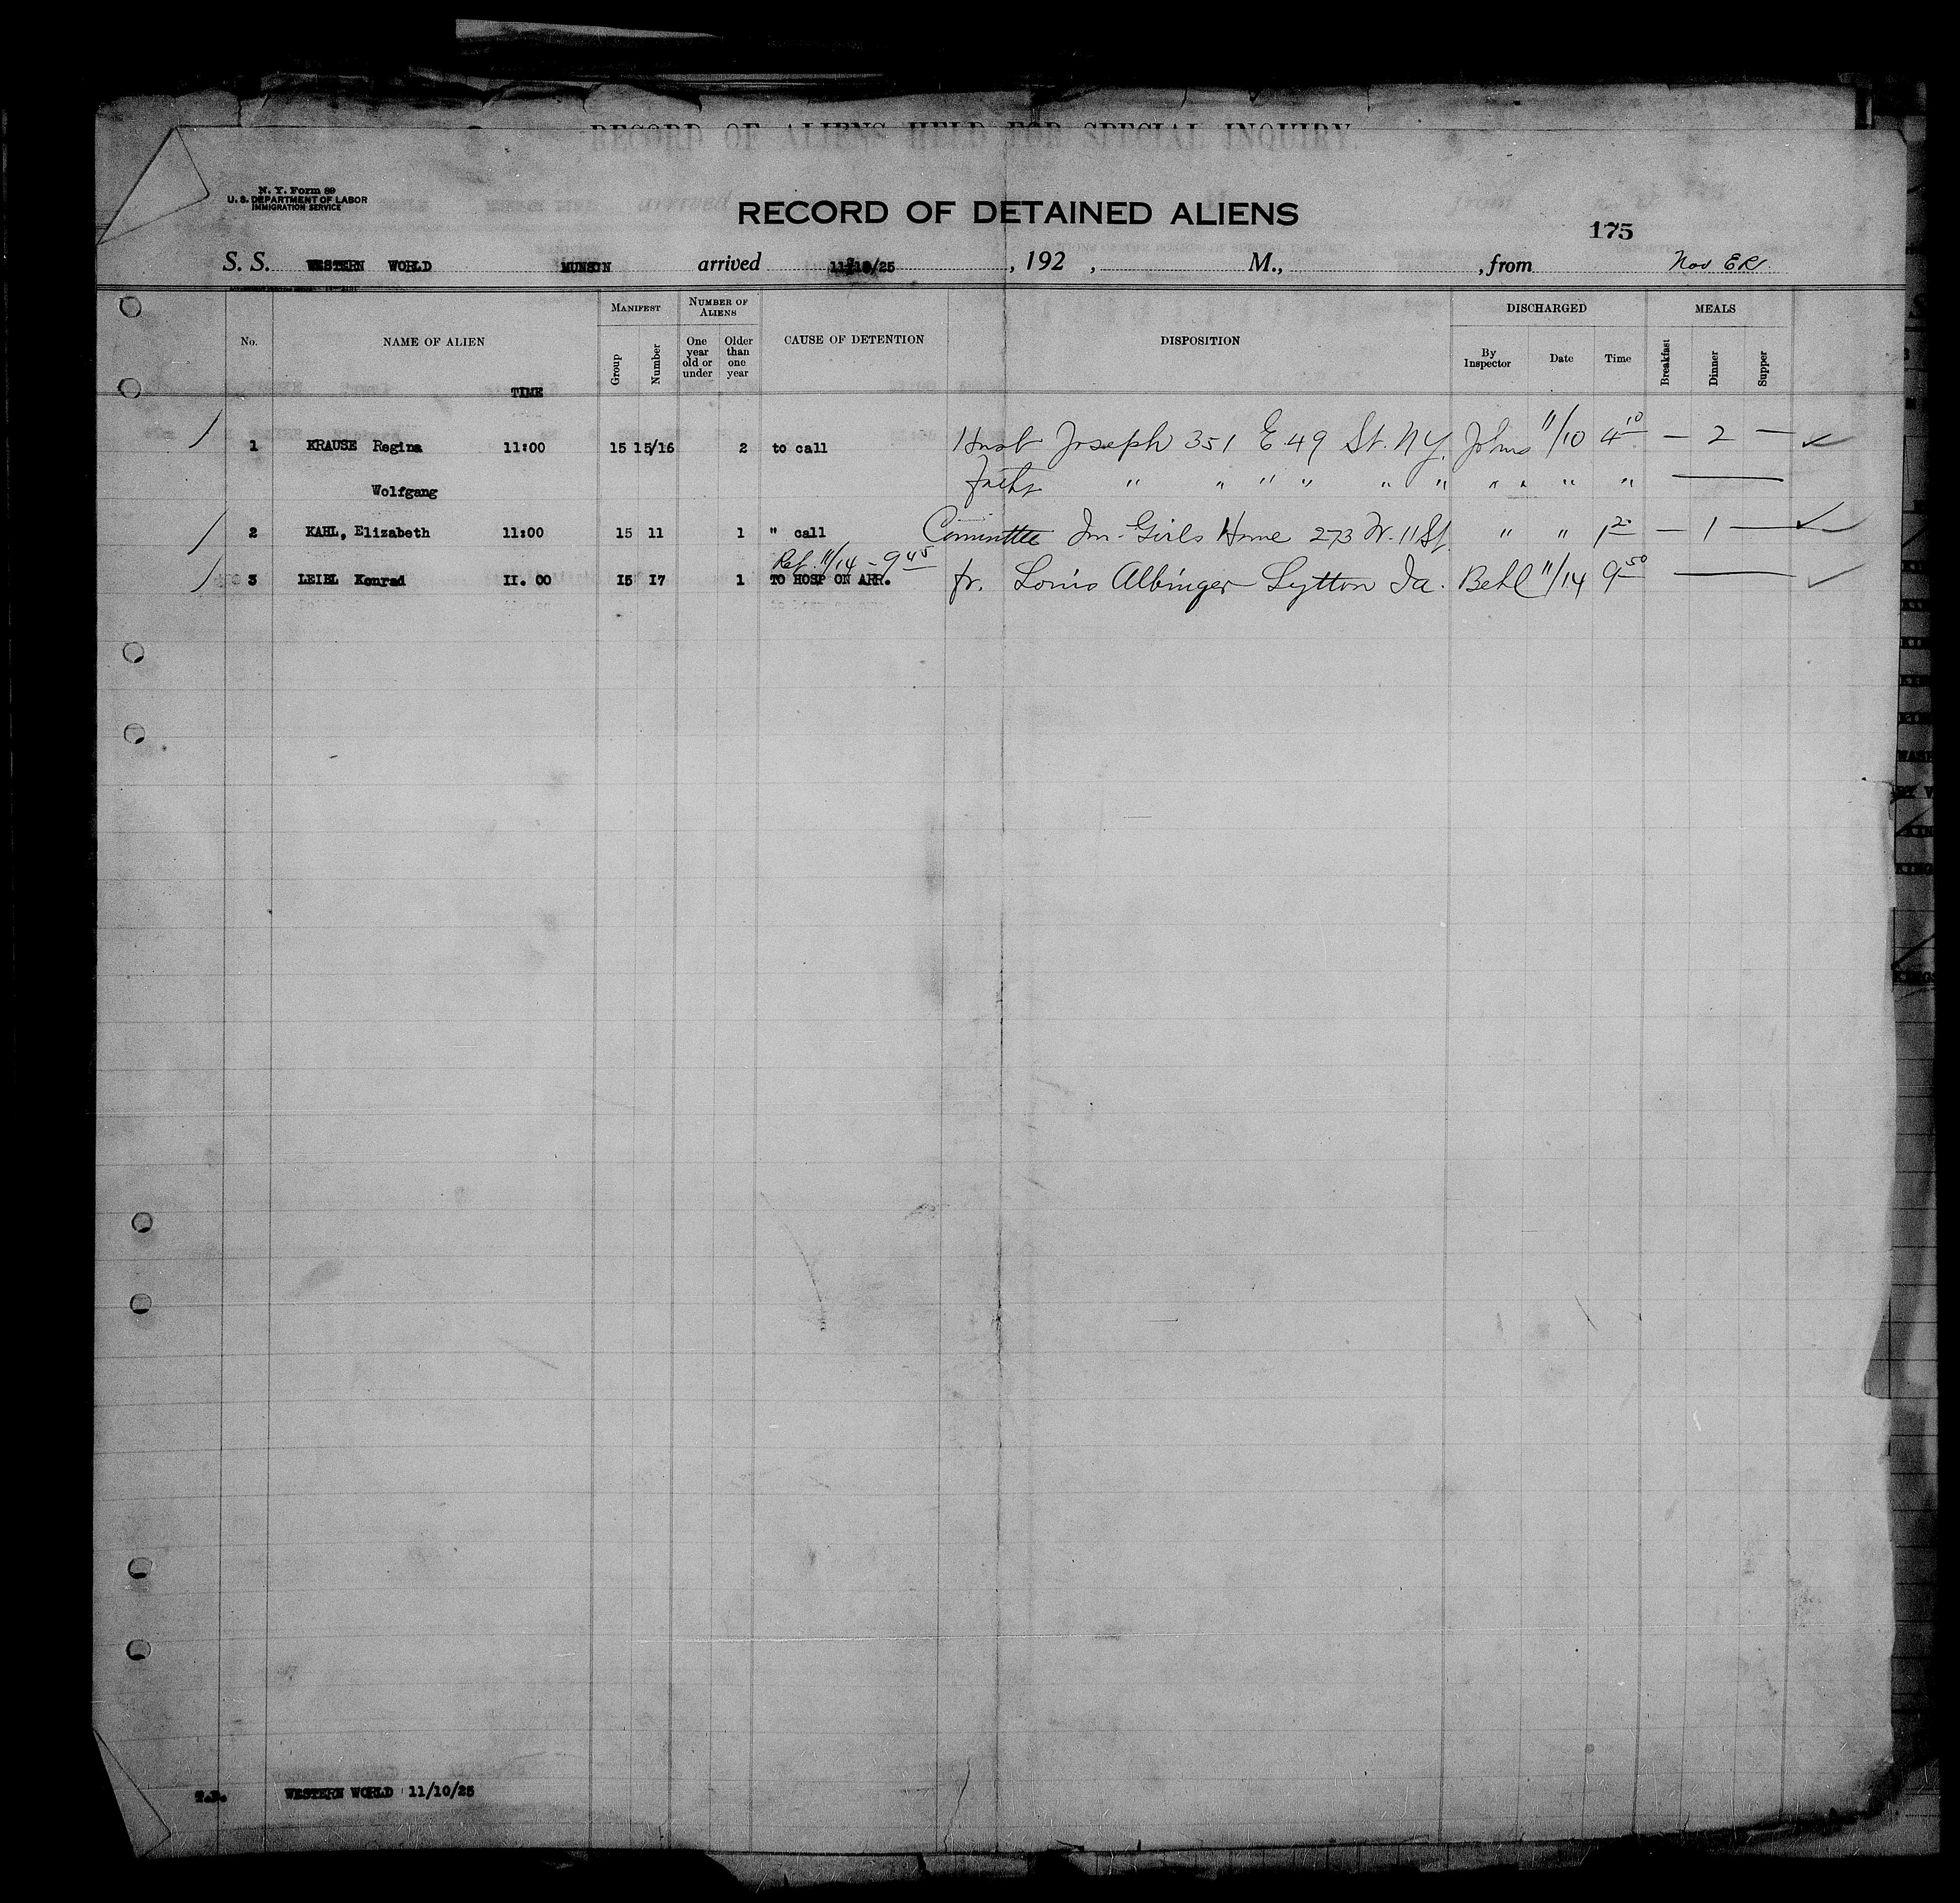 RECORD OF ALIENS HELD FOR SPECIAL INQUIRY.
N. Y. Form 89
U. S. DEPARTMENT OF LABOR
IMMIGRATION SERVICE
RECORD OF DETAINED ALIENS
175
S. S. WESTERN WORLD MUNSON arrived 11/10/25, 192 , M., , from Nov
No. NAME OF ALIEN MANIFEST NUMBER OF ALIENS CAUSE OF DETENTION DISPOSITION DISCHARGED MEALS
Group Number One year old or under Older than one year By Inspector Date Time Breakfast Dinner Supper
TIME
1 KRAUSE Regina 11:00 15 15/16 2 to call Husb Joseph 351 E 49 St. N.Y. Johns 11/10 4 10 — 2 —
Wolfgang Fathr " " " " " " " " " "
2 KAHL, Elizabeth 11:00 15 11 1 " call Committee Im. Girls Home 273 W. 11 St. " " 1 20 — 1 —
Ref. 11/14 - 9 45
3 LEIBL Konrad II. 00 I5 I7 1 TO HOSP ON ARR. fr. Louis Albinger Lytton Ia. Behl 11/14 9 50
T.D. WESTERN WORLD 11/10/25